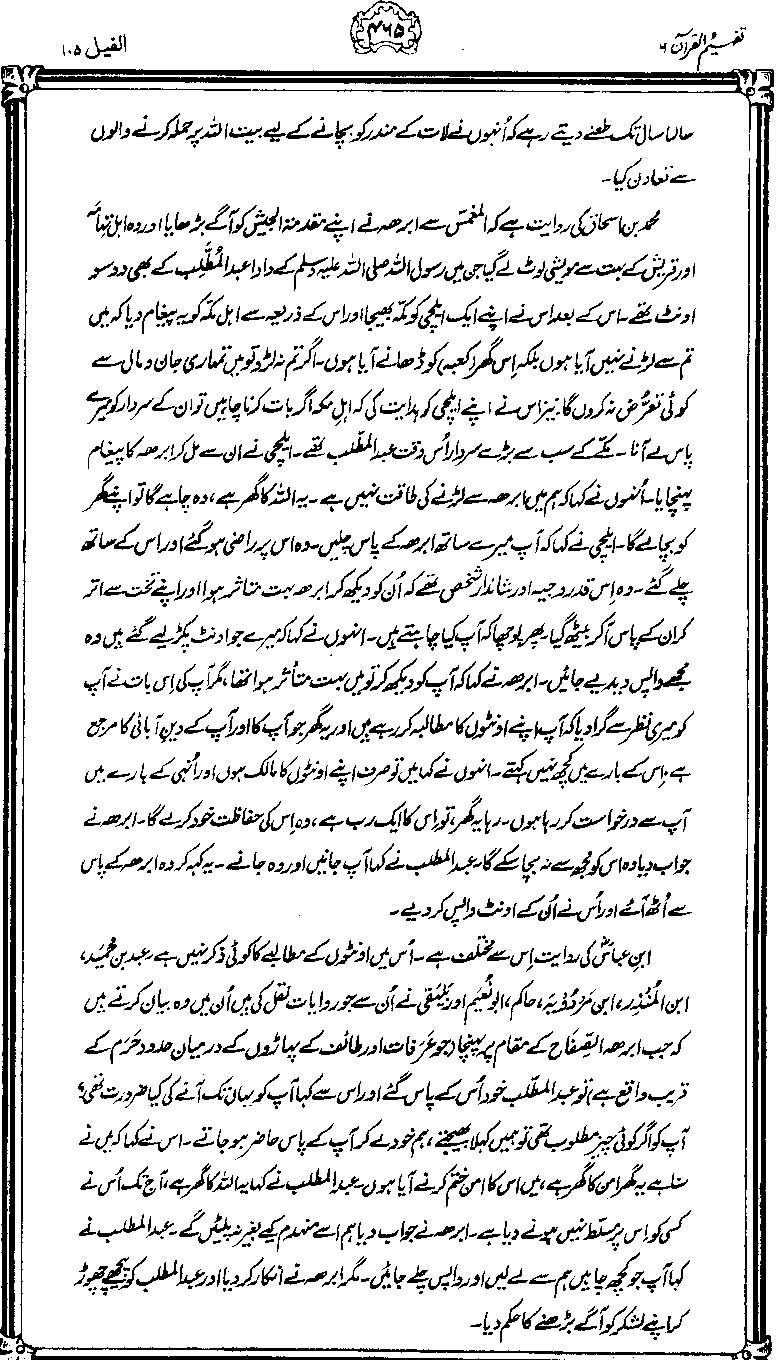 تفہیم القرآن ۶
۴۶۵
الفیل ۱۰۵
سالہا سال تک طعنے دیتے رہے کہ اُنہوں نے لات کے مندر کو بچانے کے لیے بیت اللہ پر حملہ کرنے والوں
سے تعاون کیا۔
محمد بن اسحاق کی روایت ہے کہ المغمس سے ابرھہ نے اپنے مقدمۃ الجیش کو آگے بڑھایا اور وہ اہل تہامہ
اور قریش کے بہت سے مویشی لوٹ لے گیا جن میں رسول اللہ صلی اللہ علیہ وسلم کے دادا عبدالمُطَّلِب کے بھی دو سو
اونٹ تھے۔ اس کے بعد اس نے اپنے ایک ایلچی کو مکہ بھیجا اور اس کے ذریعہ سے اہل مکہ کو یہ پیغام دیا کہ میں
تم سے لڑنے نہیں آیا ہوں بلکہ اِس گھر (کعبہ) کو ڈھانے آیا ہوں۔ اگر تم نہ لڑو تو میں تمہاری جان و مال سے
کوئی تعرُّض نہ کروں گا۔ نیز اس نے اپنے ایلچی کو ہدایت کی کہ اہلِ مکہ اگر بات کرنا چاہیں تو ان کے سردار کو میرے
پاس لے آنا۔ مکے کے سب سے بڑے سردار اُس وقت عبدالمطّلب تھے۔ ایلچی نے ان سے مل کر ابرھہ کا پیغام
پہنچایا۔ اُنہوں نے کہا کہ ہم میں ابرھہ سے لڑنے کی طاقت نہیں ہے۔ یہ اللہ کا گھر ہے، وہ چاہے گا تو اپنے گھر
کو بچا لے گا۔ ایلچی نے کہا کہ آپ میرے ساتھ ابرھہ کے پاس چلیں۔ وہ اس پر راضی ہو گئے اور اس کے ساتھ
چلے گئے۔ وہ اِس قدر وجیہ اور شاندار شخص تھے کہ اُن کو دیکھ کر ابرھہ بہت متاثر ہوا اور اپنے تخت سے اتر
کر ان کے پاس آکر بیٹھ گیا۔ پھر پوچھا کہ آپ کیا چاہتے ہیں۔ انہوں نے کہا کہ میرے جو اونٹ پکڑ لیے گئے ہیں وہ
مجھے واپس دیدیے جائیں۔ ابرھہ نے کہا کہ آپ کو دیکھ کر تو میں بہت متأثر ہوا تھا، مگر آپ کی اِس بات نے آپ
کو میری نظر سے گرا دیا کہ آپ اپنے اونٹوں کا مطالبہ کر رہے ہیں اور یہ گھر جو آپ کا اور آپ کے دینِ آبائی کا مرجع
ہے، اِس کے بارے میں کچھ نہیں کہتے۔ انہوں نے کہا میں تو صرف اپنے اونٹوں کا مالک ہوں اور اُنہی کے بارے میں
آپ سے درخواست کر رہا ہوں۔ رہا یہ گھر، تو اِس کا ایک رب ہے، وہ اِس کی حفاظت خود کر لے گا۔ ابرھہ نے
جواب دیا وہ اس کو مجھ سے نہ بچا سکے گا۔ عبدالمطلب نے کہا آپ جانیں اور وہ جانے۔ یہ کہہ کر وہ ابرھہ کے پاس
سے اُٹھ آئے اور اُس نے اُن کے اونٹ واپس کر دیے۔
ابنِ عباسؓ کی روایت اِس سے مختلف ہے۔ اُس میں اونٹوں کے مطالبے کا کوئی ذکر نہیں ہے۔ عبد بن حُمَید،
ابن المُنذِر، ابن مَرْدُوْیَہ، حاکم، ابو نُعَیم اور بَیْہَقی نے اُن سے جو روایات نقل کی ہیں اُن میں وہ بیان کرتے ہیں
کہ جب ابرھہ الصِّفاح کے مقام پر پہنچا (جو عَرَفات اور طائف کے پہاڑوں کے درمیان حدودِ حَرَم کے
قریب واقع ہے) تو عبدالمطّلب خود اُس کے پاس گئے اور اس سے کہا آپ کو یہاں تک آنے کی کیا ضرورت تھی؟
آپ کو اگر کوئی چیز مطلوب تھی تو ہمیں کہلا بھیجتے، ہم خود لے کر آپ کے پاس حاضر ہو جاتے۔ اس نے کہا کہ میں نے
سنا ہے یہ گھر امن کا گھر ہے، میں اس کا امن ختم کرنے آیا ہوں۔ عبدالمطلب نے کہا یہ اللہ کا گھر ہے، آج تک اُس نے
کسی کو اِس پر مسلط نہیں ہونے دیا ہے۔ ابرھہ نے جواب دیا ہم اسے منہدم کیے بغیر نہ پلٹیں گے۔ عبدالمطلب نے
کہا آپ جو کچھ چاہیں ہم سے لے لیں اور واپس چلے جائیں۔ مگر ابرھہ نے انکار کر دیا اور عبدالمطلب کو پیچھے چھوڑ
کر اپنے لشکر کو آگے بڑھنے کا حکم دیا۔